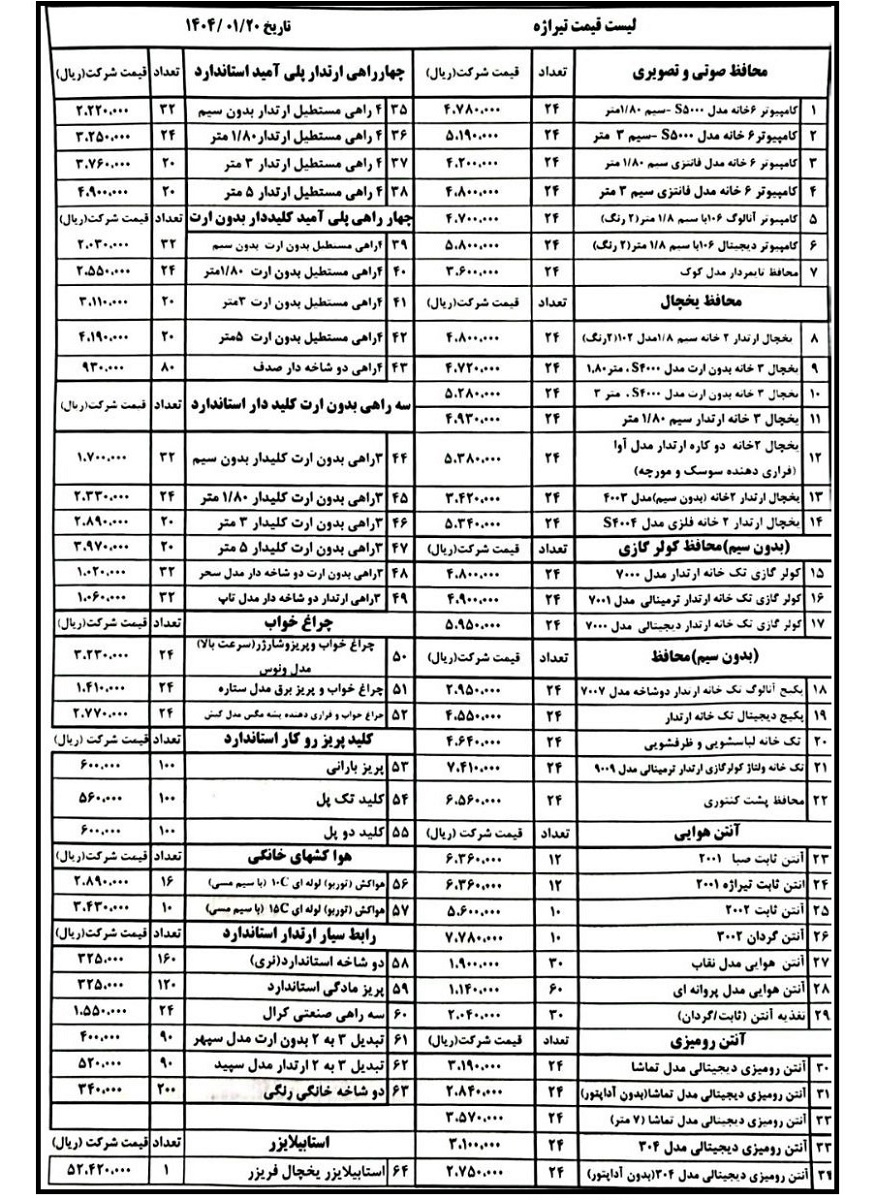 لیست قیمت تیراژه تاریخ ۱۴۰۴/۰۱/۲۰
محافظ صوتی و تصویری تعداد قیمت شرکت(ریال)
۱ کامپیوتر ۶خانه مدل S۵۰۰۰ -سیم ۱/۸۰متر ۲۴ ۴.۷۸۰.۰۰۰
۲ کامپیوتر ۶ خانه مدل S۵۰۰۰ -سیم ۳ متر ۲۴ ۵.۱۹۰.۰۰۰
۳ کامپیوتر ۶ خانه مدل فانتزی سیم ۱/۸۰ متر ۲۴ ۴.۲۰۰.۰۰۰
۴ کامپیوتر ۶ خانه مدل فانتزی سیم ۳ متر ۲۴ ۴.۸۰۰.۰۰۰
۵ کامپیوتر آنالوگ ۱۰۶با سیم ۱/۸ متر(۲ رنگ) ۲۴ ۴.۷۰۰.۰۰۰
۶ کامپیوتر دیجیتال ۱۰۶با سیم ۱/۸ متر(۲ رنگ) ۲۴ ۵.۸۰۰.۰۰۰
۷ محافظ تایمردار مدل کوک ۲۴ ۳.۶۰۰.۰۰۰
محافظ یخچال تعداد قیمت شرکت(ریال)
۸ یخچال ارتدار ۲ خانه سیم ۱/۸مدل ۱۰۲(۲رنگ) ۲۴ ۴.۸۰۰.۰۰۰
۹ یخچال ۳ خانه بدون ارت مدل S۴۰۰۰، متر ۱.۸۰ ۲۴ ۴.۷۲۰.۰۰۰
۱۰ یخچال ۳ خانه بدون ارت مدل S۴۰۰۰، متر ۳ ۲۴ ۵.۲۸۰.۰۰۰
۱۱ یخچال ۳ خانه ارتدار سیم ۱/۸۰ متر ۲۴ ۴.۹۳۰.۰۰۰
۱۲ یخچال ۲خانه دو کاره ارتدار مدل آوا ۲۴ ۵.۳۸۰.۰۰۰
(فراری دهنده سوسک و مورچه)
۱۳ یخچال ارتدار ۲خانه (بدون سیم)مدل ۴۰۰۳ ۲۴ ۳.۴۲۰.۰۰۰
۱۴ یخچال ارتدار ۲ خانه فلزی مدل S۴۰۰۴ ۲۴ ۵.۳۴۰.۰۰۰
(بدون سیم)محافظ کولر گازی تعداد قیمت شرکت(ریال)
۱۵ کولر گازی تک خانه ارتدار مدل ۷۰۰۰ ۲۴ ۴.۸۰۰.۰۰۰
۱۶ کولر گازی تک خانه ارتدار ترمینالی مدل ۷۰۰۱ ۲۴ ۴.۹۰۰.۰۰۰
۱۷ کولر گازی تک خانه ارتدار دیجیتالی مدل ۷۰۰۰ ۲۴ ۵.۹۵۰.۰۰۰
(بدون سیم)محافظ تعداد قیمت شرکت(ریال)
۱۸ پکیج آنالوگ تک خانه ارتدار دوشاخه مدل ۷۰۰۷ ۲۴ ۲.۹۵۰.۰۰۰
۱۹ پکیج دیجیتال تک خانه ارتدار ۲۴ ۴.۵۵۰.۰۰۰
۲۰ تک خانه لباسشویی و ظرفشویی ۲۴ ۴.۶۴۰.۰۰۰
۲۱ تک خانه ولتاژ کولرگازی ارتدار ترمینالی مدل ۹۰۰۹ ۲۴ ۷.۴۱۰.۰۰۰
۲۲ محافظ پشت کنتوری ۲۴ ۶.۵۶۰.۰۰۰
آنتن هوایی تعداد قیمت شرکت(ریال)
۲۳ آنتن ثابت صبا ۲۰۰۱ ۱۲ ۶.۳۶۰.۰۰۰
۲۴ آنتن ثابت تیراژه ۲۰۰۱ ۱۲ ۶.۳۶۰.۰۰۰
۲۵ آنتن ثابت ۲۰۰۲ ۱۰ ۵.۶۰۰.۰۰۰
۲۶ آنتن گردان ۳۰۰۲ ۱۰ ۷.۷۸۰.۰۰۰
۲۷ آنتن هوایی مدل نقاب ۳۰ ۱.۹۰۰.۰۰۰
۲۸ آنتن هوایی مدل پروانه ای ۶۰ ۱.۱۴۰.۰۰۰
۲۹ تغذیه آنتن (ثابت/گردان) ۳۰ ۲.۰۴۰.۰۰۰
آنتن رومیزی تعداد قیمت شرکت(ریال)
۳۰ آنتن رومیزی دیجیتالی مدل تماشا ۲۴ ۳.۱۹۰.۰۰۰
۳۱ آنتن رومیزی دیجیتالی مدل تماشا(بدون آداپتور) ۲۴ ۲.۸۴۰.۰۰۰
۳۲ آنتن رومیزی دیجیتالی مدل تماشا (۷ متر) ۲۴ ۳.۵۷۰.۰۰۰
۳۳ آنتن رومیزی دیجیتالی مدل ۳۰۴ ۲۴ ۳.۱۰۰.۰۰۰
۳۴ آنتن رومیزی دیجیتالی مدل ۳۰۴(بدون آداپتور) ۲۴ ۲.۷۵۰.۰۰۰
چهارراهی ارتدار پلی آمید استاندارد تعداد قیمت شرکت(ریال)
۳۵ ۴ راهی مستطیل ارتدار بدون سیم ۳۲ ۲.۲۲۰.۰۰۰
۳۶ ۴ راهی مستطیل ارتدار۱/۸۰ متر ۲۴ ۳.۲۵۰.۰۰۰
۳۷ ۴ راهی مستطیل ارتدار ۳ متر ۲۰ ۳.۷۶۰.۰۰۰
۳۸ ۴ راهی مستطیل ارتدار ۵ متر ۲۰ ۴.۹۰۰.۰۰۰
چهار راهی پلی آمید کلیددار بدون ارت تعداد قیمت شرکت(ریال)
۳۹ ۴راهی مستطیل بدون ارت بدون سیم ۳۲ ۲.۰۳۰.۰۰۰
۴۰ ۴راهی مستطیل بدون ارت ۱/۸۰متر ۲۴ ۲.۵۵۰.۰۰۰
۴۱ ۴راهی مستطیل بدون ارت ۳متر ۲۰ ۳.۱۱۰.۰۰۰
۴۲ ۴راهی مستطیل بدون ارت ۵متر ۲۰ ۴.۱۹۰.۰۰۰
۴۳ ۴راهی دو شاخه دار صدف ۸۰ ۹۳۰.۰۰۰
سه راهی بدون ارت کلید دار استاندارد تعداد قیمت شرکت(ریال)
۴۴ ۳راهی بدون ارت کلیدار بدون سیم ۳۲ ۱.۷۰۰.۰۰۰
۴۵ ۳راهی بدون ارت کلیدار ۱/۸۰ متر ۲۴ ۲.۳۳۰.۰۰۰
۴۶ ۳راهی بدون ارت کلیدار ۳ متر ۲۰ ۲.۸۹۰.۰۰۰
۴۷ ۳راهی بدون ارت کلیدار ۵ متر ۲۰ ۳.۹۷۰.۰۰۰
۴۸ ۳راهی بدون ارت دو شاخه دار مدل سحر ۳۲ ۱.۰۲۰.۰۰۰
۴۹ ۳راهی ارتدار دو شاخه دار مدل تاپ ۳۲ ۱.۰۶۰.۰۰۰
چراغ خواب تعداد قیمت شرکت(ریال)
۵۰ چراغ خواب وپریزوشارژر(سرعت بالا) ۲۴ ۳.۲۳۰.۰۰۰
مدل ونوس
۵۱ چراغ خواب و پریز برق مدل ستاره ۲۴ ۱.۴۱۰.۰۰۰
۵۲ چراغ خواب و فراری دهنده پشه مگس مدل کیش ۲۴ ۲.۷۷۰.۰۰۰
کلید پریز رو کار استاندارد تعداد قیمت شرکت (ریال)
۵۳ پریز بارانی ۱۰۰ ۶۰۰.۰۰۰
۵۴ کلید تک پل ۱۰۰ ۵۶۰.۰۰۰
۵۵ کلید دو پل ۱۰۰ ۶۰۰.۰۰۰
هوا کشهای خانگی تعداد قیمت شرکت(ریال)
۵۶ هواکش (توربو) لوله ای ۱۰C (با سیم مسی) ۱۶ ۲.۸۹۰.۰۰۰
۵۷ هواکش (توربو) لوله ای ۱۵C (با سیم مسی) ۱۰ ۳.۴۳۰.۰۰۰
رابط سیار ارتدار استاندارد تعداد قیمت شرکت(ریال)
۵۸ دو شاخه استاندارد(نری) ۱۶۰ ۳۲۵.۰۰۰
۵۹ پریز مادگی استاندارد ۱۲۰ ۳۲۵.۰۰۰
۶۰ سه راهی صنعتی کرال ۲۴ ۱.۵۵۰.۰۰۰
۶۱ تبدیل ۳ به ۲ بدون ارت مدل سپهر ۹۰ ۴۰۰.۰۰۰
۶۲ تبدیل ۳ به ۲ ارتدار مدل سپید ۹۰ ۵۲۰.۰۰۰
۶۳ دو شاخه خانگی رنگی ۲۰۰ ۳۴۰.۰۰۰
استابیلایزر تعداد قیمت شرکت (ریال)
۶۴ استابیلایزر یخچال فریزر ۱ ۵۲.۴۲۰.۰۰۰